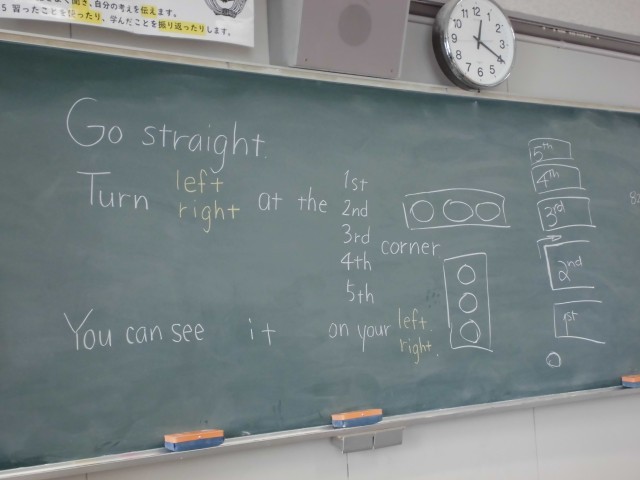 聞き、自分の考えを伝えます。
5 習ったことを使ったり、学んだことを振り返ったりします。
12 1 2 3 4 5 6 7 8 9 10 11
Go straight.
Turn left right at the 1st 2nd 3rd 4th 5th corner
You can see it on your left. right.
5th
4th
3rd
2nd
1st